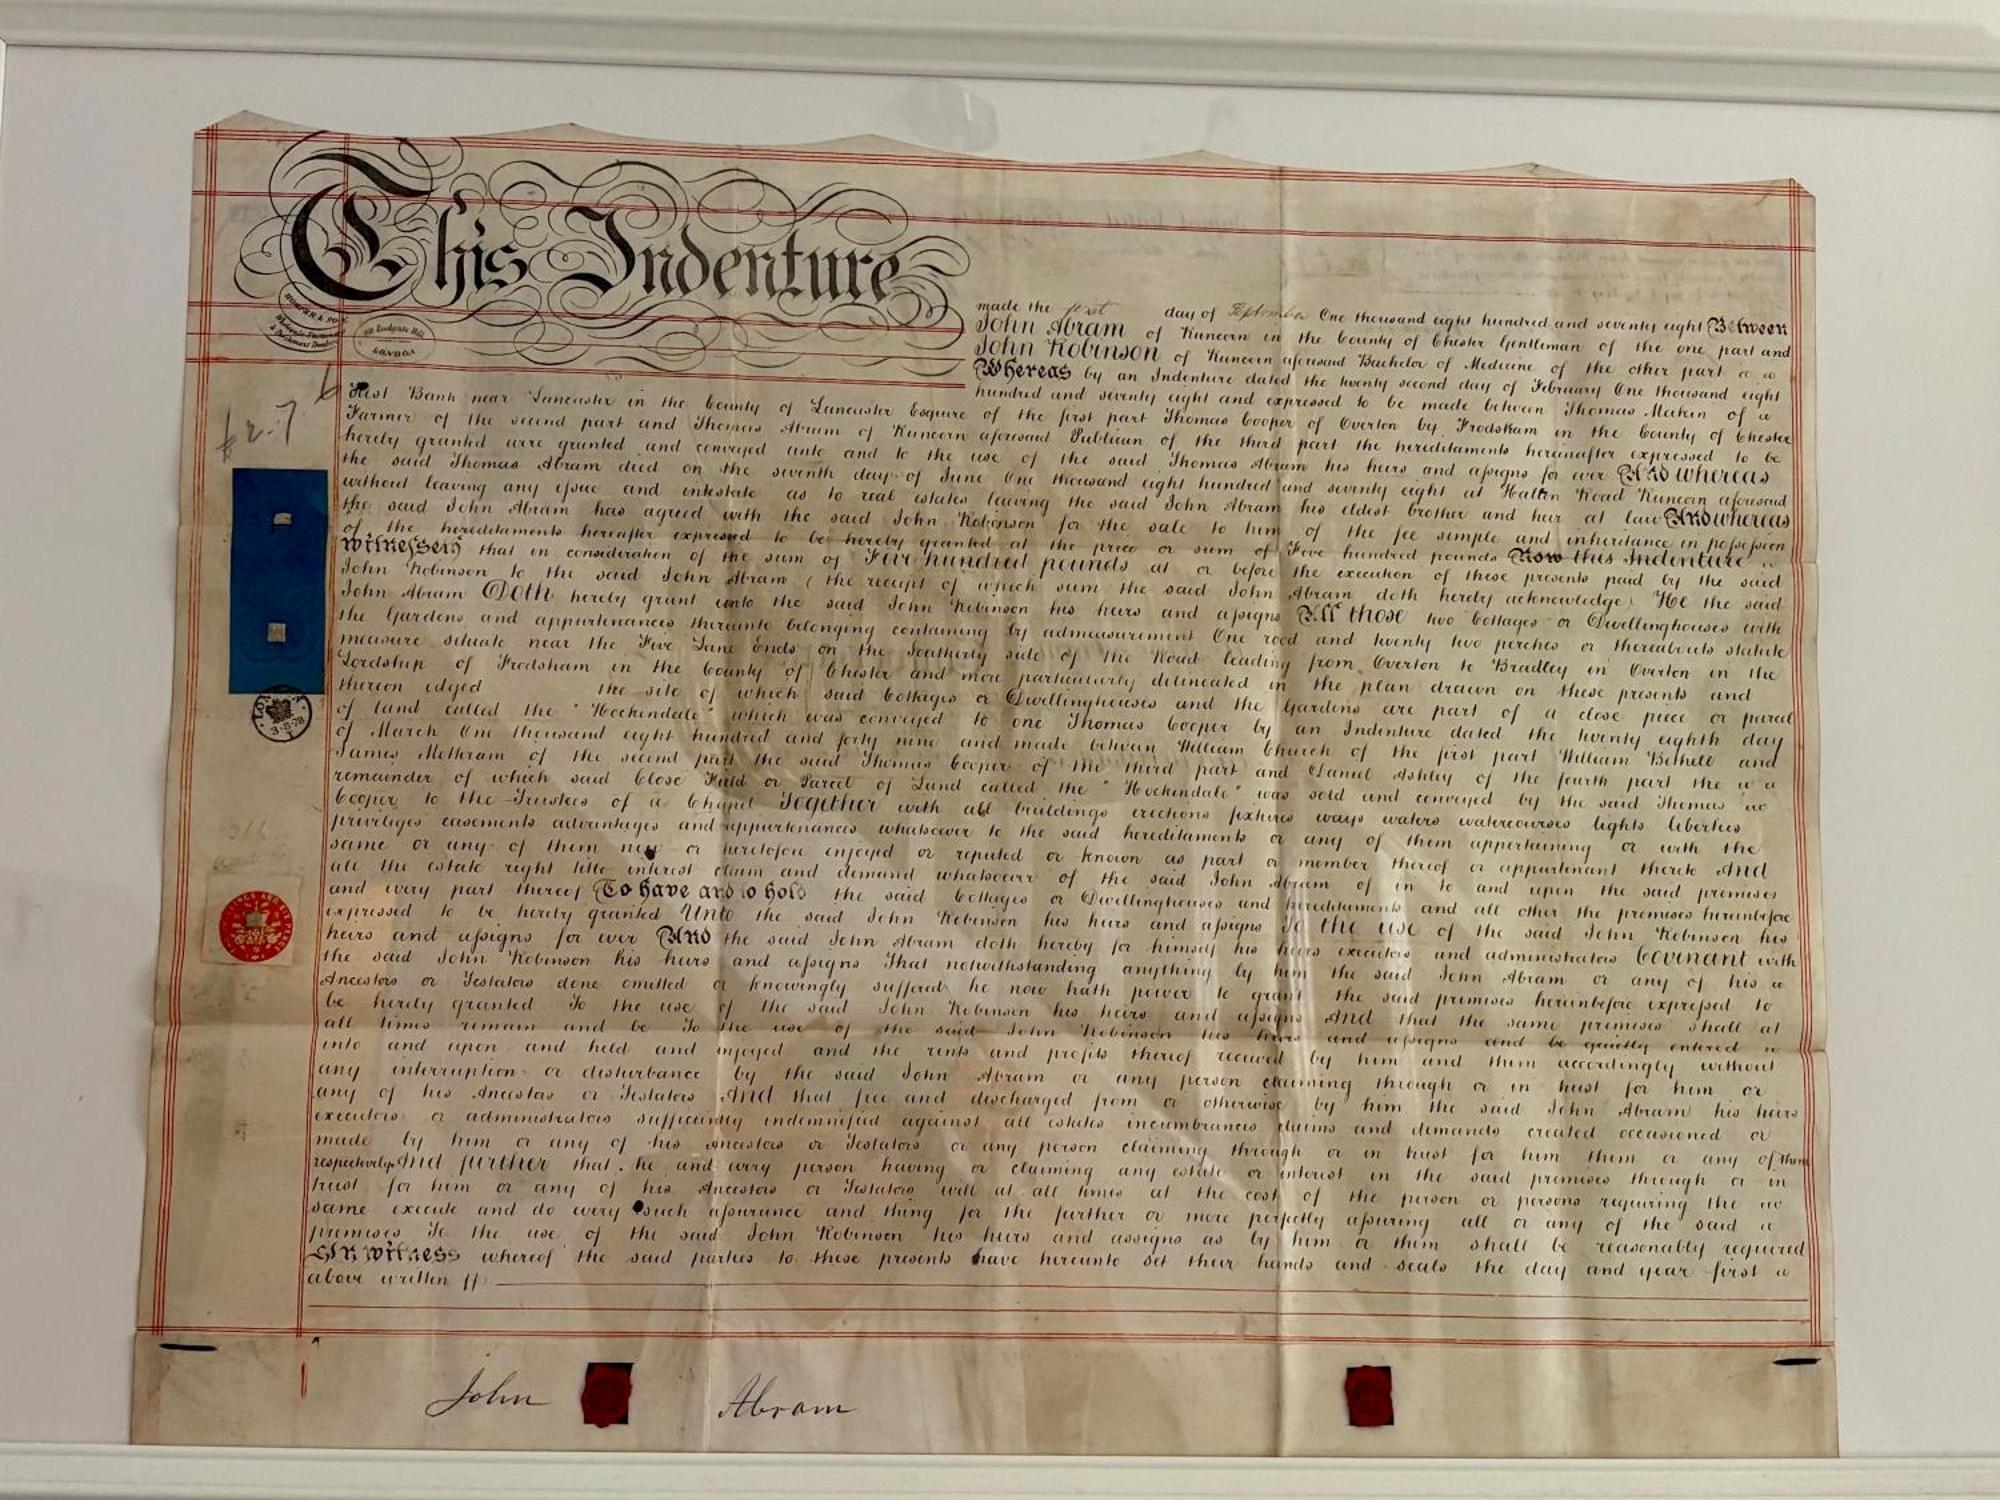 This Indenture
made the first day of September One thousand eight hundred and seventy eight Between
John Abram of Runcorn in the County of Chester Gentleman of the one part and
John Robinson of Runcorn aforesaid Bachelor of Medicine of the other part
Whereas by an Indenture dated the twenty second day of February One thousand eight
hundred and seventy eight and expressed to be made between Thomas Makin of
Hest Bank near Lancaster in the County of Lancaster Esquire of the first part Thomas Cooper of Overton by Frodsham in the County of Chester
Farmer of the second part and Thomas Abram of Runcorn aforesaid Publican of the third part the hereditaments hereinafter expressed to be
hereby granted were granted and conveyed unto and to the use of the said Thomas Abram his heirs and assigns for ever And whereas
the said Thomas Abram died on the seventh day of June One thousand eight hundred and seventy eight at Halton Road Runcorn aforesaid
without leaving any issue and intestate as to real estates leaving the said John Abram his eldest brother and heir at law And whereas
the said John Abram has agreed with the said John Robinson for the sale to him of the fee simple and inheritance in possession
of the hereditaments hereafter expressed to be hereby granted at the price or sum of Five hundred pounds Now this Indenture
witnesseth that in consideration of the sum of Five hundred pounds at or before the execution of these presents paid by the said
John Robinson to the said John Abram (the receipt of which sum the said John Abram doth hereby acknowledge) He the said
John Abram Doth hereby grant unto the said John Robinson his heirs and assigns All those two Cottages or Dwellinghouses with
the Gardens and appurtenances thereunto belonging containing by admeasurement One rood and twenty two perches or thereabouts statute
measure situate near the Five Lane Ends on the Southerly side of the Road leading from Overton to Bradley in Overton in the
Lordship of Frodsham in the County of Chester and more particularly delineated in the plan drawn on these presents and
thereon edged the site of which said Cottages or Dwellinghouses and the Gardens are part of a close piece or parcel
of land called the "Hockendale" which was conveyed to one Thomas Cooper by an Indenture dated the twenty eighth day
of March One thousand eight hundred and forty nine and made between William Church of the first part William Bethell and
James Motteram of the second part the said Thomas Cooper of the third part and Daniel Ashley of the fourth part the
remainder of which said Close Field or Parcel of Land called the "Hockendale" was sold and conveyed by the said Thomas
Cooper to the Trustees of a Chapel Together with all buildings erections fixtures ways waters watercourses lights liberties
privileges easements advantages and appurtenances whatsoever to the said hereditaments or any of them appertaining or with the
same or any of them now or heretofore enjoyed or reputed or known as part or member thereof or appurtenant thereto And
all the estate right title interest claim and demand whatsoever of the said John Abram of in to and upon the said premises
and every part thereof To have and to hold the said Cottages or Dwellinghouses and hereditaments and all other the premises hereinbefore
expressed to be hereby granted Unto the said John Robinson his heirs and assigns To the use of the said John Robinson his
heirs and assigns for ever And the said John Abram doth hereby for himself his heirs executors and administrators Covenant with
the said John Robinson his heirs and assigns That notwithstanding anything by him the said John Abram or any of his
Ancestors or Testators done omitted or knowingly suffered he now hath power to grant the said premises hereinbefore expressed to
be hereby granted To the use of the said John Robinson his heirs and assigns And that the same premises shall at
all times remain and be To the use of the said John Robinson his heirs and assigns and be quietly entered
into and upon and held and enjoyed and the rents and profits thereof received by him and them accordingly without
any interruption or disturbance by the said John Abram or any person claiming through or in trust for him or
any of his Ancestors or Testators And that free and discharged from or otherwise by him the said John Abram his heirs
executors or administrators sufficiently indemnified against all estates incumbrances claims and demands created occasioned or
made by him or any of his Ancestors or Testators or any person claiming through or in trust for him them or any of them
respectively And further that he and every person having or claiming any estate or interest in the said premises through or in
trust for him or any of his Ancestors or Testators will at all times at the cost of the person or persons requiring the
same execute and do every such assurance and thing for the further or more perfectly assuring all or any of the said
premises To the use of the said John Robinson his heirs and assigns as by him or them shall be reasonably required
In witness whereof the said parties to these presents have hereunto set their hands and seals the day and year first
above written
John Abram
69 Ludgate Hill
LONDON
3·8·78